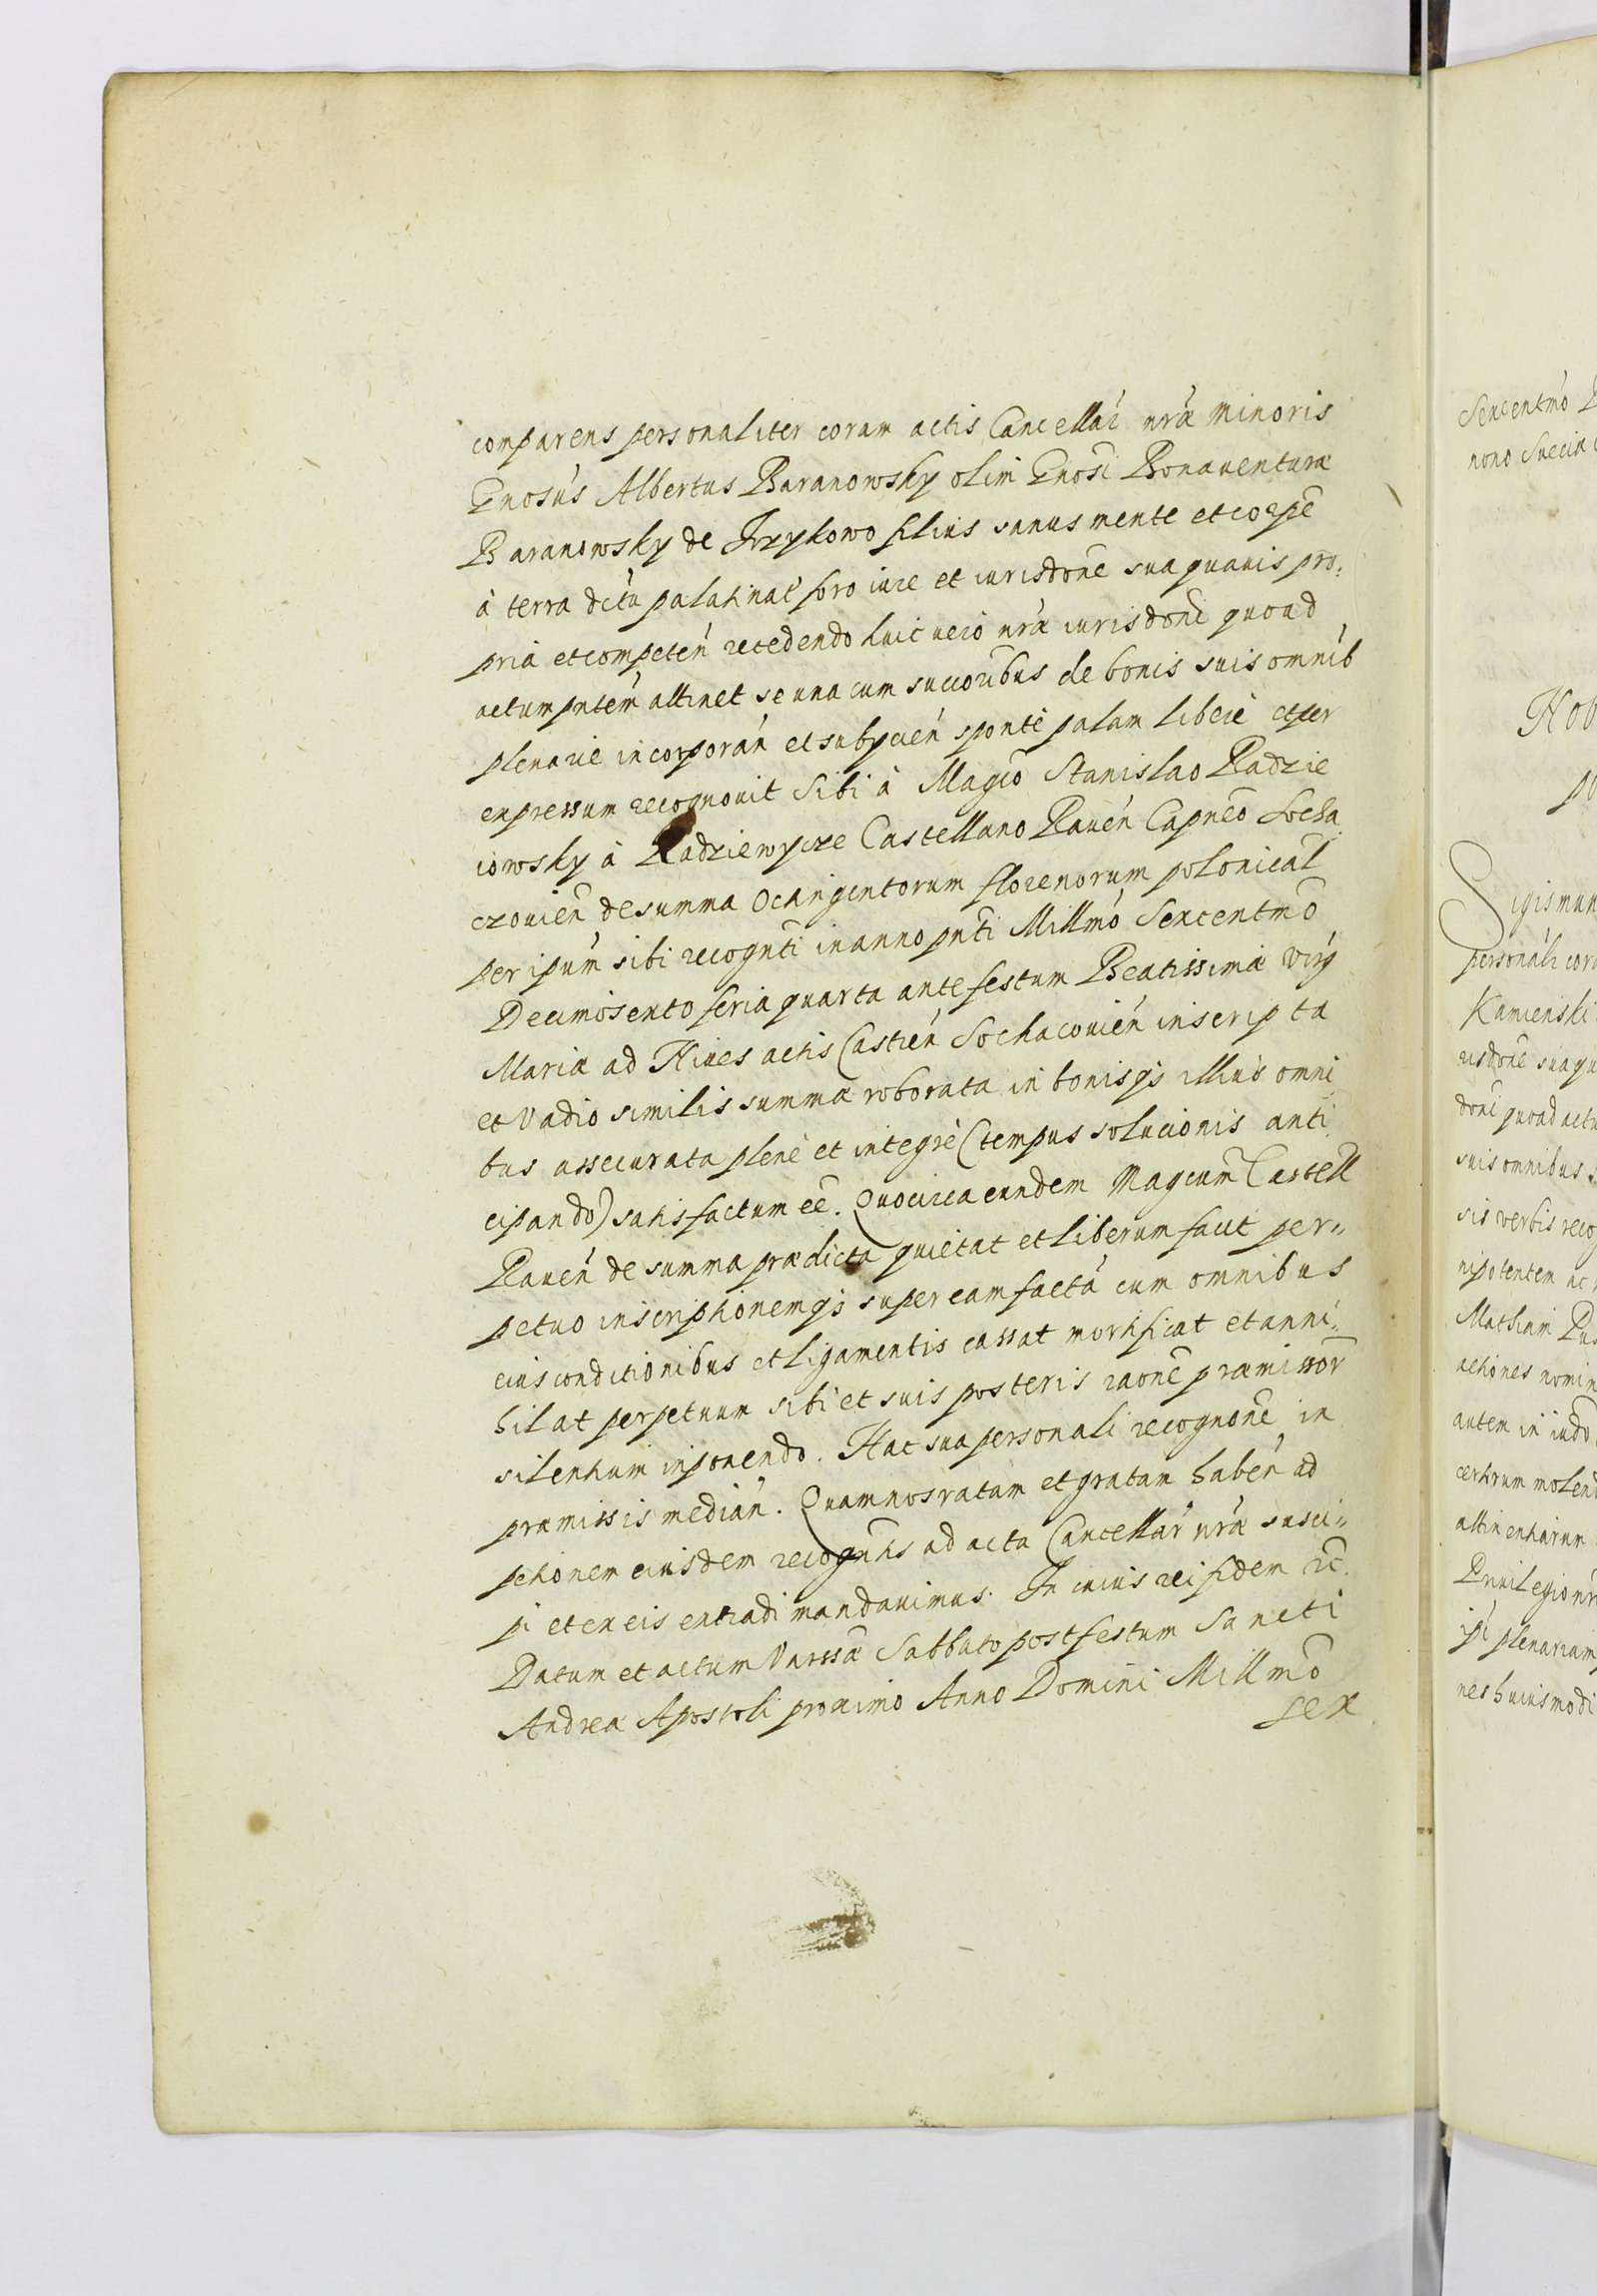 comparens personaliter coram actis Cancellar nrae Minoris
Gnosus Albertus Baranowsky olim Gnosi Bonaventurae
Baranowsky de Jrzykowo filius sanus mente et corpe
à terra dictu palatinat foro iure et iurisdone sua quavis pro:
pria et competen recedendo huic vero nrae iurisdoni quoad
actum pntem attinet se una cum succoribus de bonis suis omnib
plenarie incorporan et subycien sponte palam libere et per
expressum recognovit Sibi à Magco Stanislao Radzie
iowsky à Radziewycze Castellano Raven Capneo Socha
czovien de summa Octingentorum florenorum polonical
per ipum sibi recognti in anno pnti Millmo Sexcentmo
Decimosexto feria quarta ante festum Beatissimae Virg
Mariae ad Nives actis Castren Sochacovien inscripta
et Vadio similis summae roborata in bonisqs illius omni
bus assecurata plenè et integrè (tempus solucionis anti
cipando) satisfactum eē. Quocirca eundem Magcum Castell
Raven de summa praedicta quietat et liberum facit per„
petuo inscriptionemqs super eam factā cum omnibus
eius conditionibus et ligamentis cassat mortificat et anni„
hilat perpetuum sibi et suis posteris raone praemissor
silentium inponendo. Hac sua personali recognone in
praemissis median. Quam nos ratam et gratam haben ad
petionem eiusdem recogntis ad acta Cancellar nrae susci„
pi et ex eis extradi mandavimus. In cuius rei fidem rc.
Datum et actum Varssae Sabbato post festum Sancti
Andreae Apostoli proximo Anno Domini Millmo
sex
Sexcentmo
nono Sueciae
Sigismun
personalr cora
Kamienski
risdone sua qu
doni quoad actu
suis omnibus
sis verbis reco
nipotentem ac
Mathiam
actiones nomin
autem in iudo
certarum molend
attinentiarum
Privilegio nr
ipi plenariam
nes huiusmodi